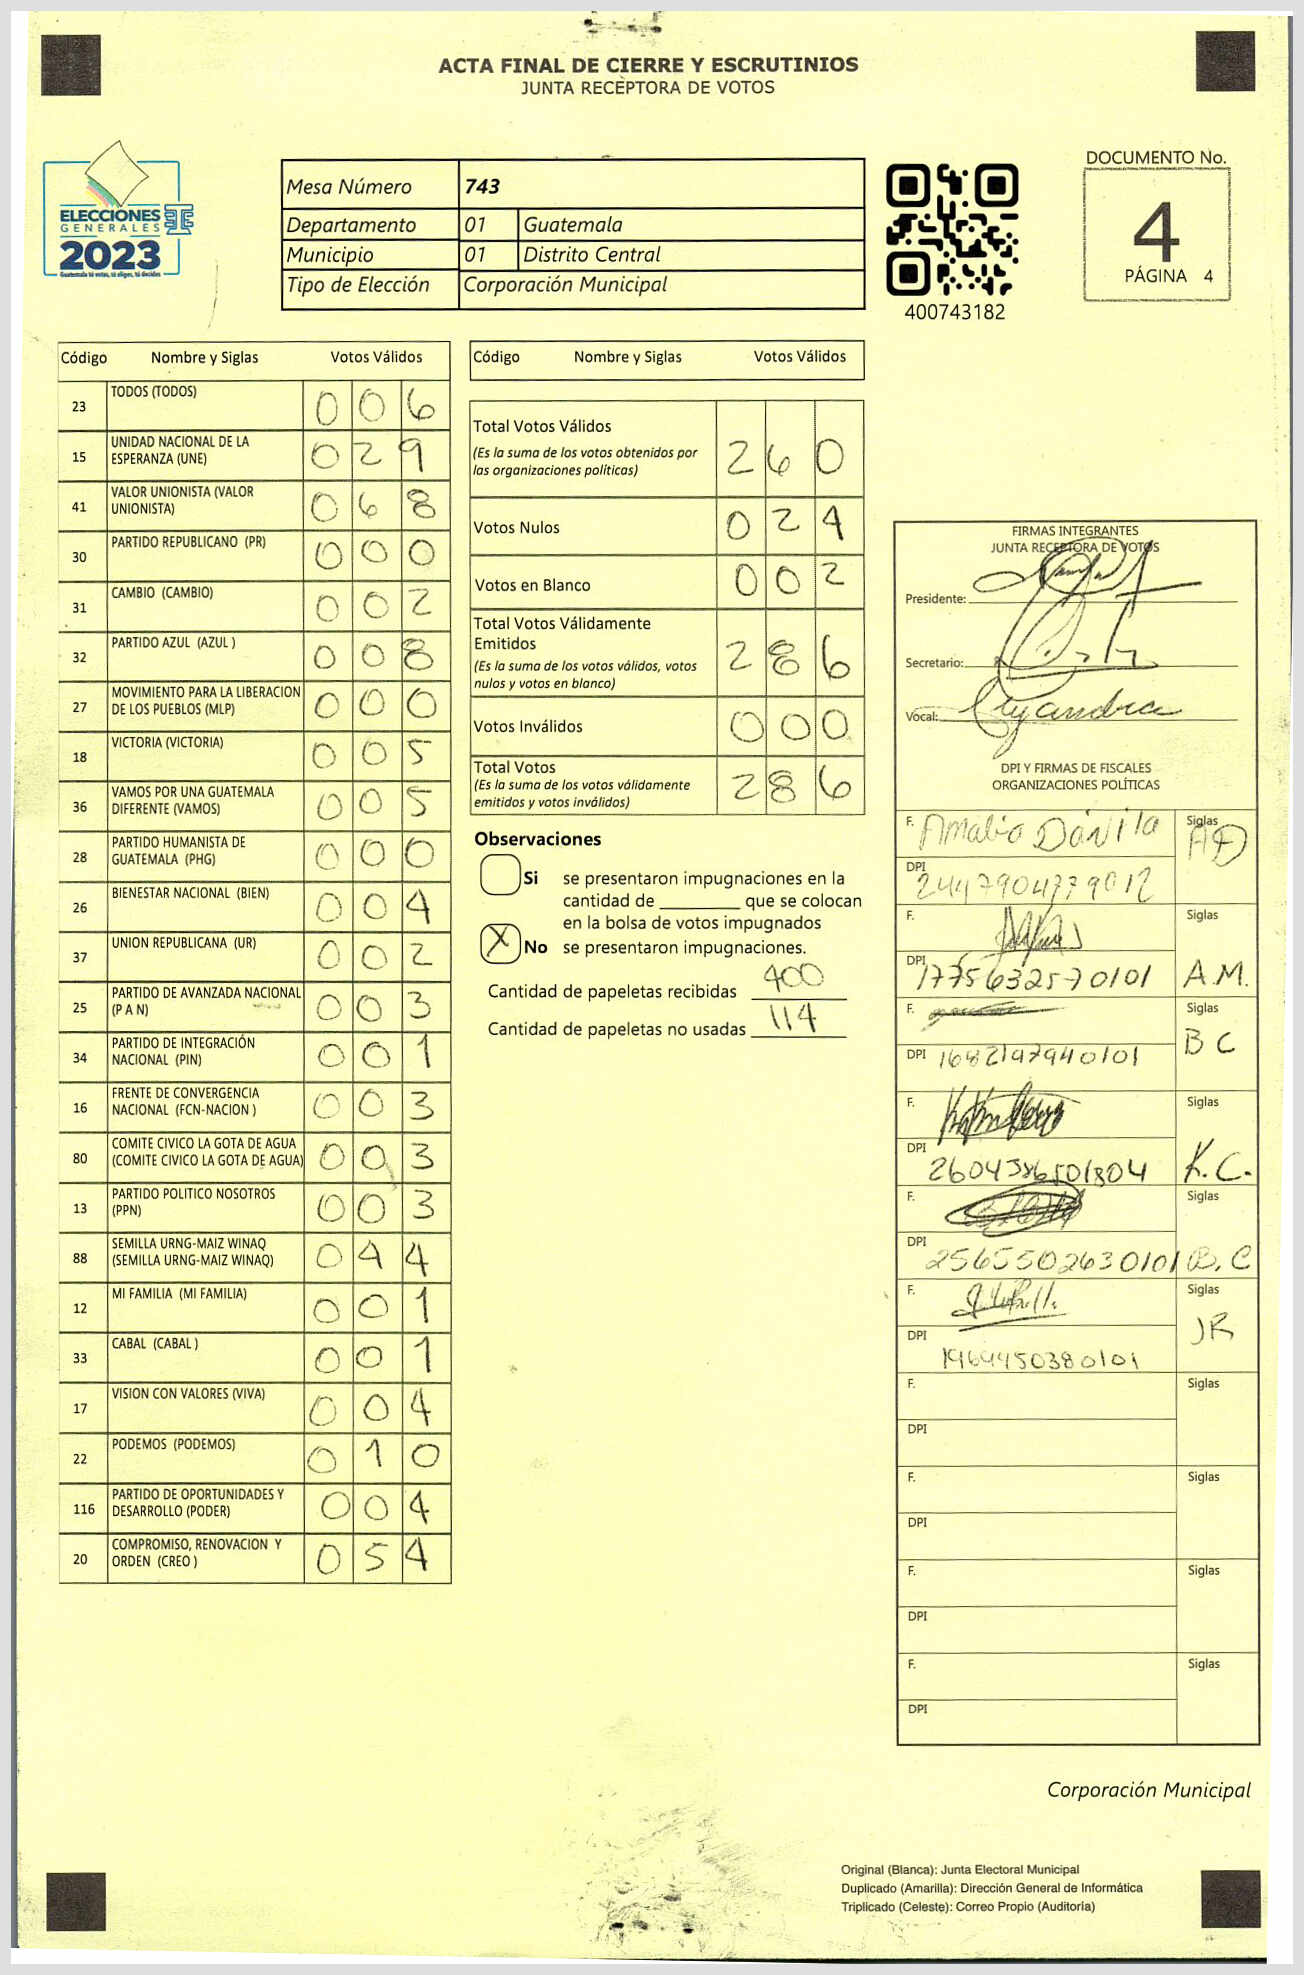 ACTA FINAL DE CIERRE Y ESCRUTINIOS
JUNTA RECEPTORA DE VOTOS
ELECCIONES
GENERALES
2023
Guatemala tú votas, tú eliges, tú decides
Mesa Número 743
Departamento 01 Guatemala
Municipio 01 Distrito Central
Tipo de Elección Corporación Municipal
400743182
DOCUMENTO No.
4
PÁGINA 4
Código Nombre y Siglas Votos Válidos
23 TODOS (TODOS) 0 0 6
15 UNIDAD NACIONAL DE LA
ESPERANZA (UNE) 0 2 9
41 VALOR UNIONISTA (VALOR
UNIONISTA) 0 6 8
30 PARTIDO REPUBLICANO (PR) 0 0 0
31 CAMBIO (CAMBIO) 0 0 2
32 PARTIDO AZUL (AZUL ) 0 0 8
27 MOVIMIENTO PARA LA LIBERACION
DE LOS PUEBLOS (MLP) 0 0 0
18 VICTORIA (VICTORIA) 0 0 5
36 VAMOS POR UNA GUATEMALA
DIFERENTE (VAMOS) 0 0 5
28 PARTIDO HUMANISTA DE
GUATEMALA (PHG) 0 0 0
26 BIENESTAR NACIONAL (BIEN) 0 0 4
37 UNION REPUBLICANA (UR) 0 0 2
25 PARTIDO DE AVANZADA NACIONAL
(P A N) 0 0 3
34 PARTIDO DE INTEGRACIÓN
NACIONAL (PIN) 0 0 1
16 FRENTE DE CONVERGENCIA
NACIONAL (FCN-NACION ) 0 0 3
80 COMITE CIVICO LA GOTA DE AGUA
(COMITE CIVICO LA GOTA DE AGUA) 0 0 3
13 PARTIDO POLITICO NOSOTROS
(PPN) 0 0 3
88 SEMILLA URNG-MAIZ WINAQ
(SEMILLA URNG-MAIZ WINAQ) 0 4 4
12 MI FAMILIA (MI FAMILIA) 0 0 1
33 CABAL (CABAL ) 0 0 1
17 VISION CON VALORES (VIVA) 0 0 4
22 PODEMOS (PODEMOS) 0 1 0
116 PARTIDO DE OPORTUNIDADES Y
DESARROLLO (PODER) 0 0 4
20 COMPROMISO, RENOVACION Y
ORDEN (CREO ) 0 5 4
Código Nombre y Siglas Votos Válidos
Total Votos Válidos
(Es la suma de los votos obtenidos por
las organizaciones políticas) 2 6 0
Votos Nulos 0 2 4
Votos en Blanco 0 0 2
Total Votos Válidamente
Emitidos
(Es la suma de los votos válidos, votos
nulos y votos en blanco) 2 8 6
Votos Inválidos 0 0 0
Total Votos
(Es la suma de los votos válidamente
emitidos y votos inválidos) 2 8 6
Observaciones
Si se presentaron impugnaciones en la
cantidad de ________ que se colocan
en la bolsa de votos impugnados
X No se presentaron impugnaciones.
Cantidad de papeletas recibidas 400
Cantidad de papeletas no usadas 114
FIRMAS INTEGRANTES
JUNTA RECEPTORA DE VOTOS
Presidente:
Secretario:
Vocal: Alejandra
DPI Y FIRMAS DE FISCALES
ORGANIZACIONES POLÍTICAS
F. Amalia Dávila Siglas AD
DPI
F. Siglas A.M.
DPI 1775632570101
F. Siglas B C
DPI 1682197940101
F. Siglas K.C.
DPI
F. Siglas B.C
DPI 2565502630101
F. Siglas JR
DPI 1969450380101
F. Siglas
DPI
F. Siglas
DPI
F. Siglas
DPI
F. Siglas
DPI
Corporación Municipal
Original (Blanca): Junta Electoral Municipal
Duplicado (Amarilla): Dirección General de Informática
Triplicado (Celeste): Correo Propio (Auditoría)